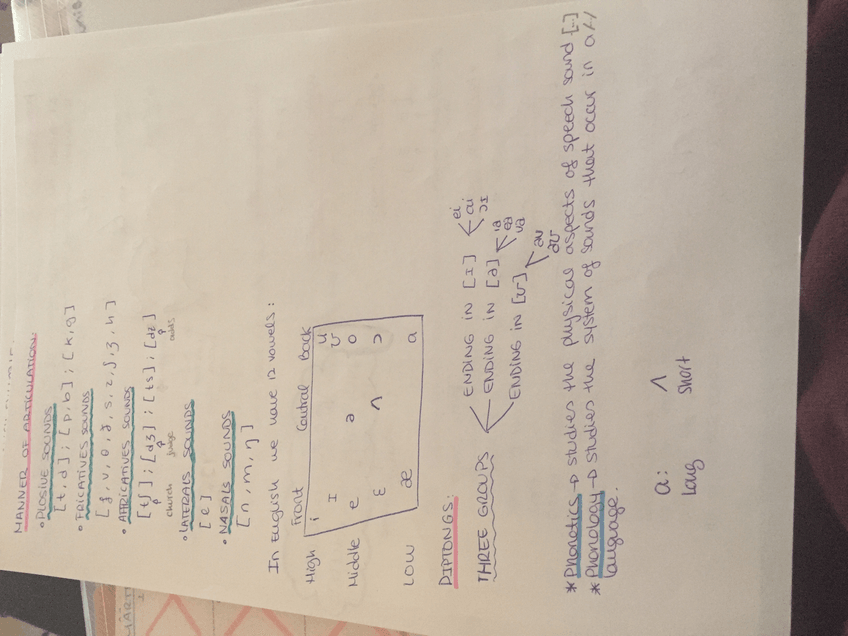 MANNER OF ARTICULATION:
• PLOSIVE SOUNDS
[t, d] ; [p, b] ; [k, g]
• FRICATIVES SOUNDS
[f, v, θ, ð, s, z, ʃ, ʒ, h]
• AFFRICATIVES SOUNDS
[tʃ] ; [dʒ] ; [ts] ; [dz]
church judge
• LATERALS SOUNDS
[l]
• NASALS SOUNDS
[n, m, ŋ]
In English we have 12 vowels:
Front Central Back
High i u
I ʊ
Middle e ə o
ɛ ʌ ɔ
LOW æ a
DIPTONGS:
THREE GROUPS
ENDING IN [I] ei ai ɔI
ENDING IN [ə] ıə eə ʊə
ENDING IN [ʊ] əu
* Phonetics → studies the physical aspects of speech sound [..]
* Phonology → studies the system of sounds that occur in a /·/
language.
a: ʌ
long short